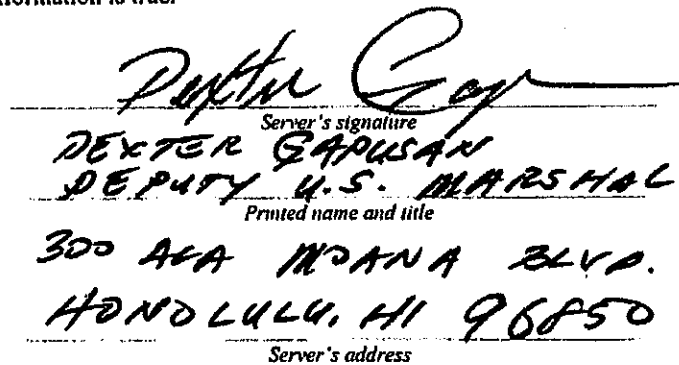 information is true.
Dexter Gap
Server's signature
DEXTER GAPUSAN
DEPUTY U.S. MARSHAL
Printed name and title
300 ALA MOANA BLVD.
HONOLULU, HI 96850
Server's address